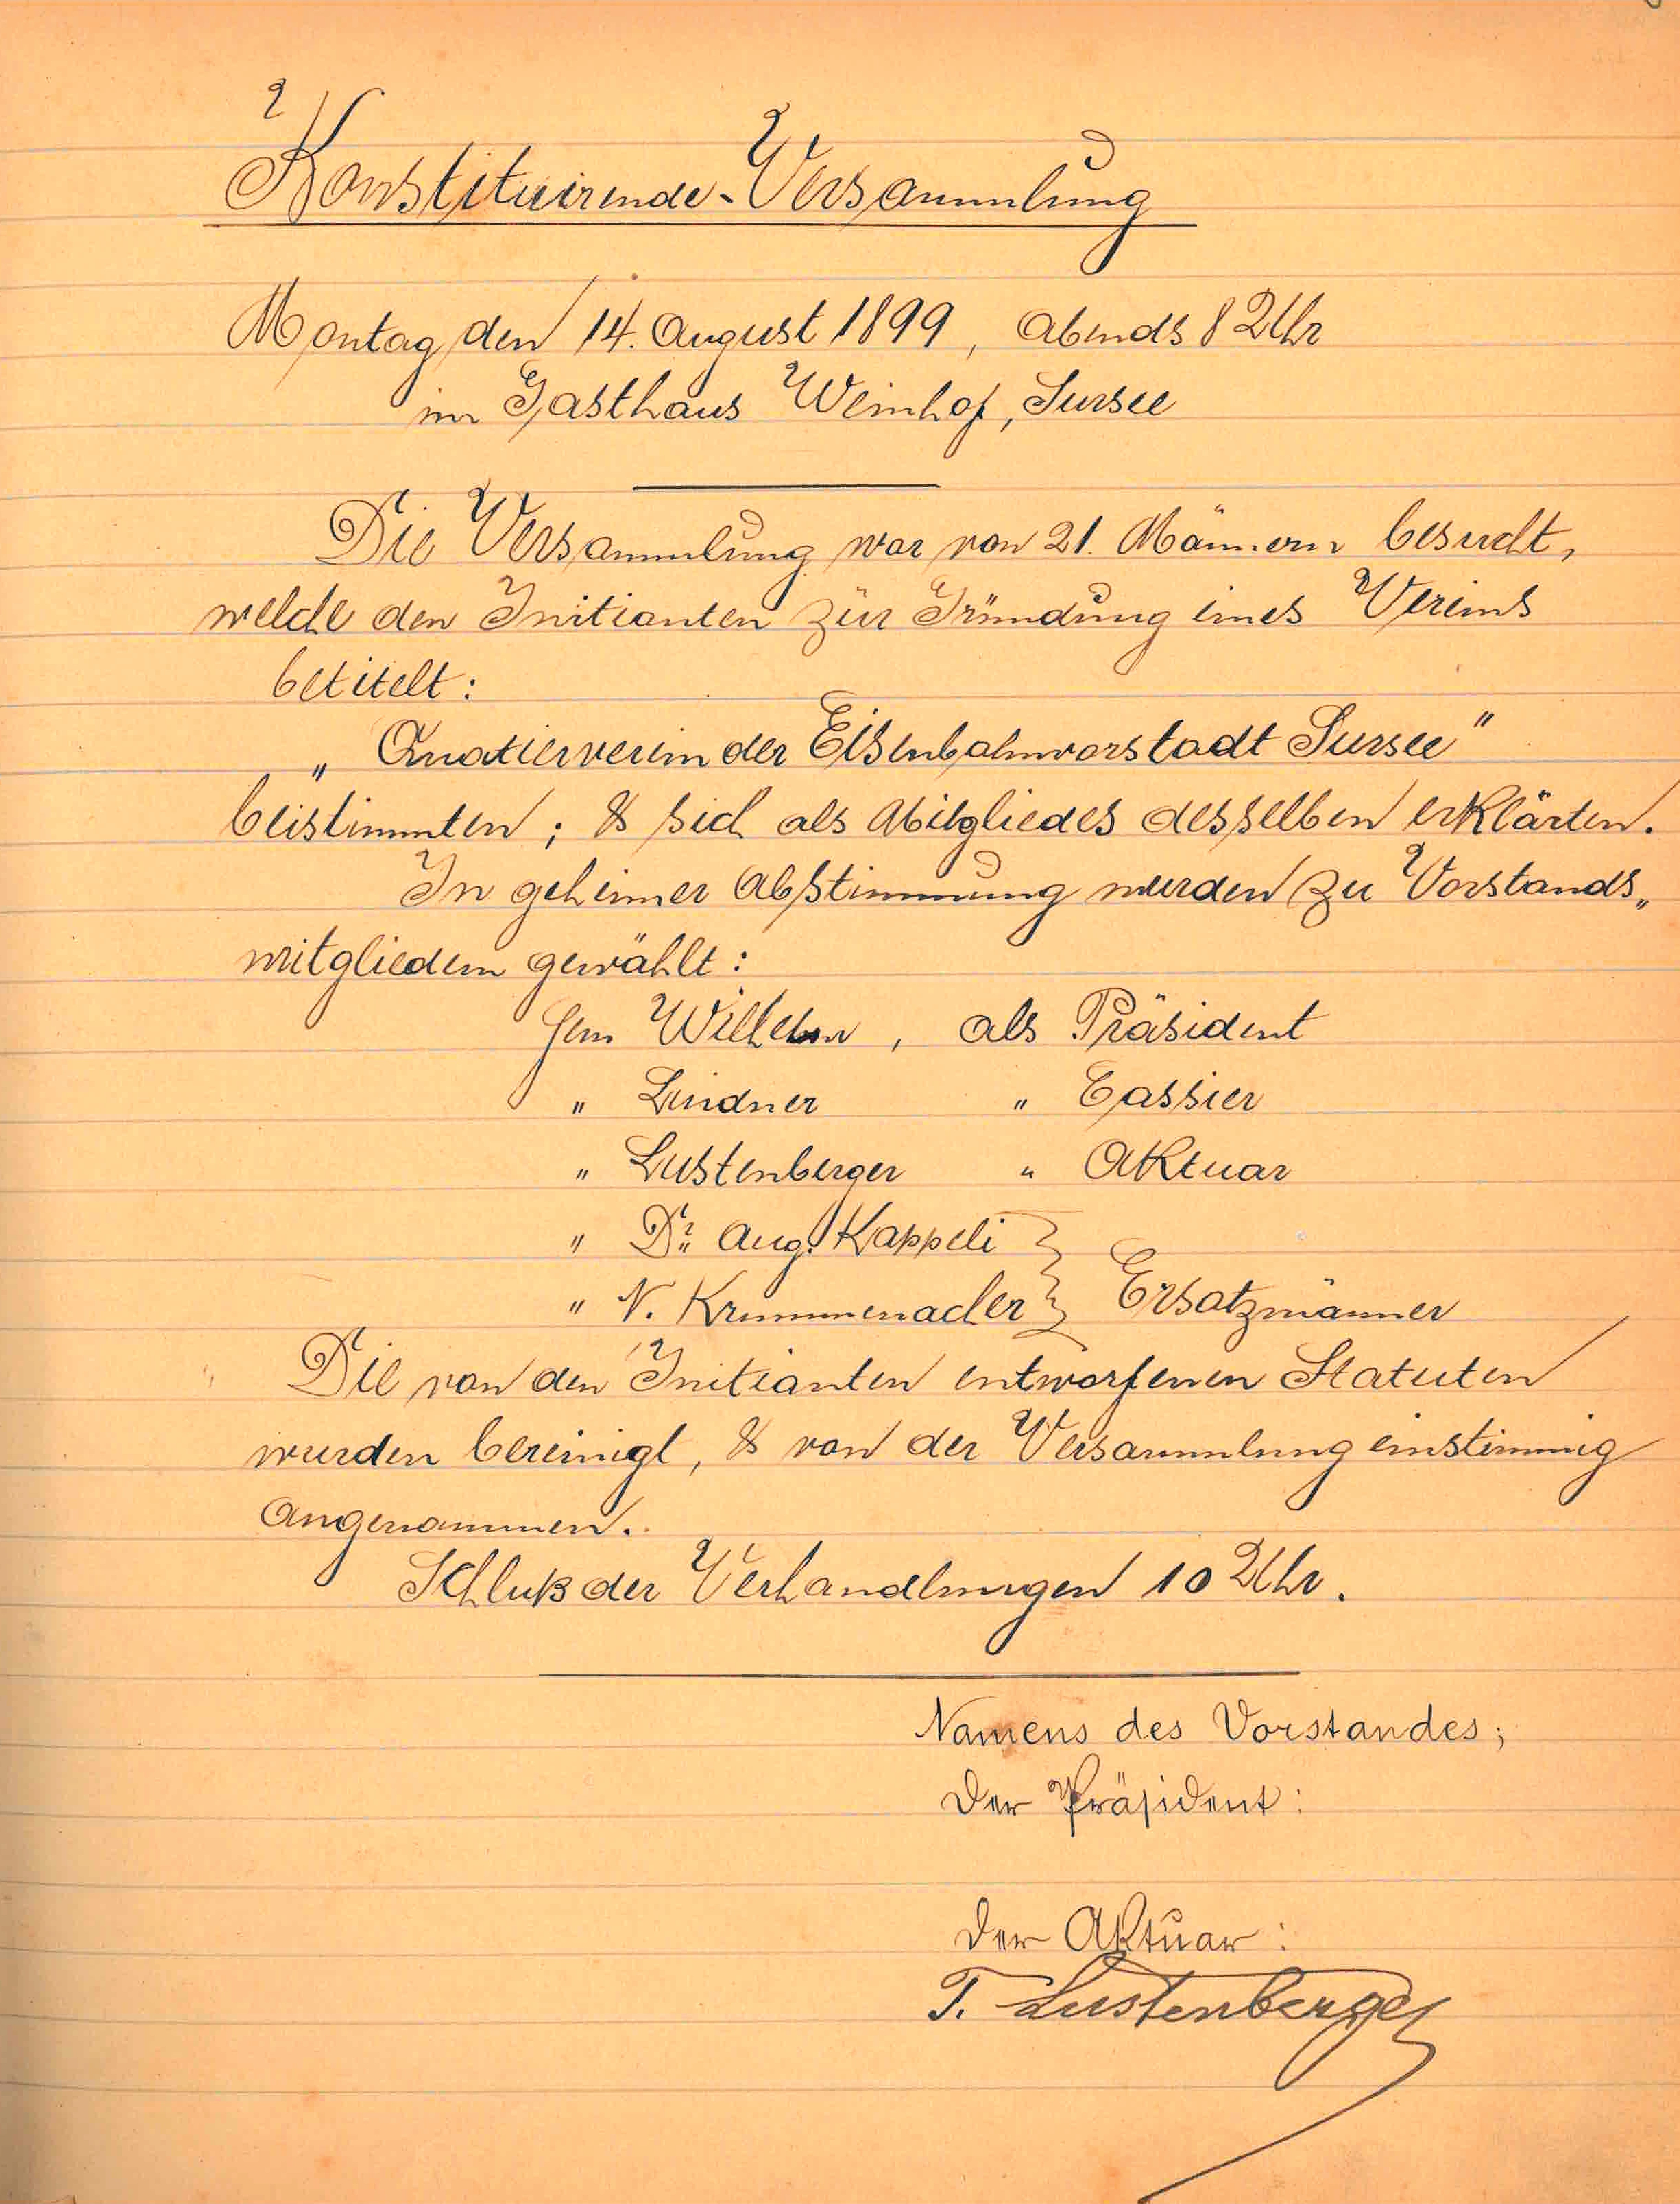 Konstituirende-Versammlung
Montag den 14. August 1899, Abends 8 Uhr
im Gasthaus Weinhof, Sursee
Die Versammlung war von 21. Männern besucht,
welche den Initianten zur Gründung eines Vereins
betitelt:
„Quatierverein der Eisenbahnvorstadt Sursee"
beistimmten; & sich als Mitgliedes desselben erklärten.
In geheimer Abstimmung wurden zu Vorstands„
mitgliedern gewählt:
Hrn Wilhelm, als Präsident
" Lindner " Cassier
" Lustenberger " Aktuar
" Dr. Aug. Kappeli
" N. Krummenacher } Ersatzmänner
Die von den Initianten entworfenen Statuten
wurden bereinigt, & von der Versammlung einstimmig
angenommen.
Schluß der Verhandlungen 10 Uhr.
Namens des Vorstandes;
Der Präsident:
Der Aktuar:
T. Lustenberger